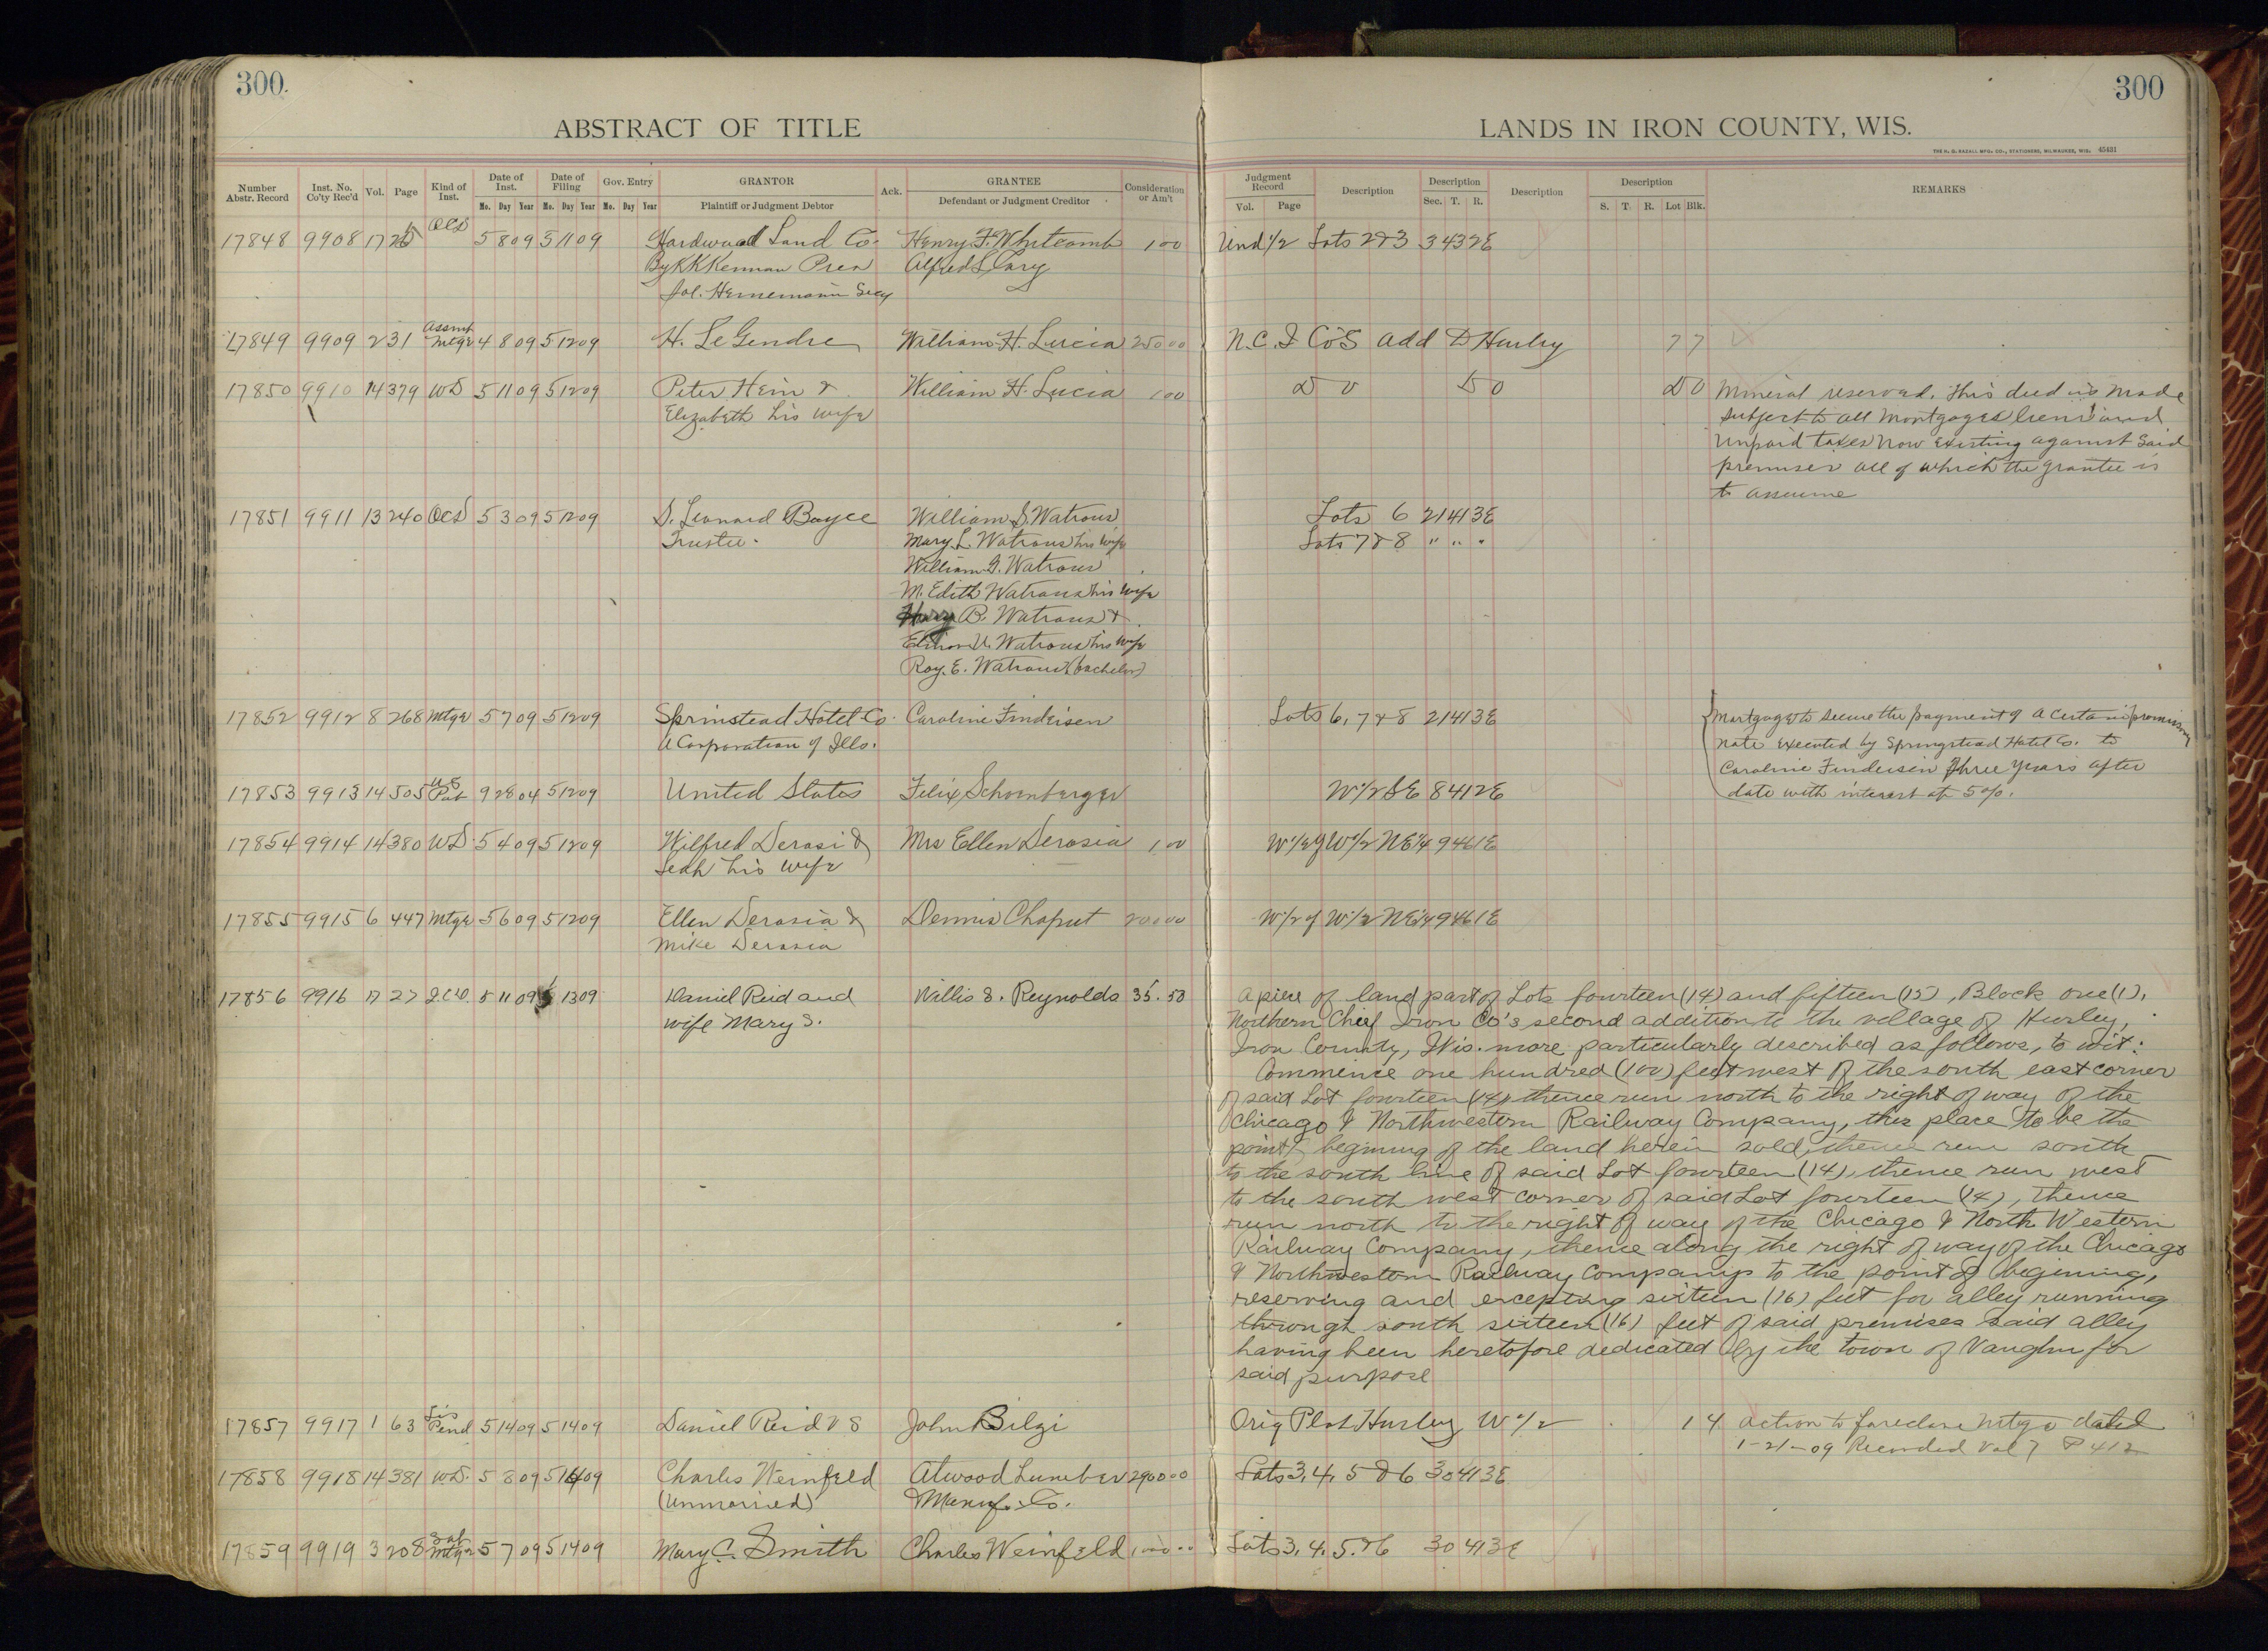 300.
ABSTRACT OF TITLE
Number Abstr. Record Inst. No. Co'ty Rec'd Vol. Page Kind of Inst. Date of Inst. Date of Filing Gov. Entry GRANTOR Ack. GRANTEE Consideration or Am't
Mo. Day Year Mo. Day Year Mo. Day Year Plaintiff or Judgment Debtor Defendant or Judgment Creditor
17848 9908 17 QCD 5 8 09 5 11 09 Hardwood Land Co. Henry F. Whitcomb 1 00
By K K Kennan Pres Alfred L Cary
Sol. Heinemann Secy
17849 9909 2 31 Assmt Mtge 4 8 09 5 12 09 H. Le Gendre William H. Lucia 250 00
17850 9910 14 379 WD 5 11 09 5 12 09 Peter Hein & William H. Lucia 1 00
Elizabeth his wife
17851 9911 13 240 QCD 5 3 09 5 12 09 S. Leonard Boyce William S. Watrous
Trustee. Mary L. Watrous his wife
William G. Watrous
M. Edith Watrous his wife
Harry B. Watrous &
U. Watrous his wife
Roy. E. Watrous (bachelor)
17852 9912 8 268 Mtge 5 7 09 5 12 09 Sprinstead Hotel Co. Caroline Findeisen
A Corporation of Ills.
17853 9913 14 505 US Pat 9 28 04 5 12 09 United States Felix Schornberger
17854 9914 14 380 WD. 5 4 09 5 12 09 Wilfred Derasi & Mrs Ellen Derasia 1,00
Leah his wife
17855 9915 6 447 Mtge 5 6 09 5 12 09 Ellen Derasia & Dennis Chaput 200 00
Mike Derasia
17856 9916 17 27 Q.C.D. 5 11 09 5 13 09 Daniel Reid and Willis S. Reynolds 35.50
wife Mary S.
17857 9917 1 63 Lis Pend 5 14 09 5 14 09 Daniel Reid VS John Bilgi
17858 9918 14 381 W.D. 5 8 09 5 14 09 Charles Weinfeld Atwood Lumber 2900 00
(Unmarried) & Manuf. Co.
17859 9919 3 208 Sat Mtge 5 7 09 5 14 09 Mary C. Smith Charles Weinfeld 1,000 00
300
LANDS IN IRON COUNTY, WIS.
THE H. G. RAZALL MFG. CO., STATIONERS, MILWAUKEE, WIS. 45431
Judgment Record Description Description Description Description REMARKS
Vol. Page Sec. T. R. S. T. R. Lot Blk.
Und 1/2 Lots 2 & 3 3 43 2E
N.C.I Co's Add to Hurley 7 7
Do Do Do Mineral reserved. This deed is made
subject to all Mortgages liens and
Unpaid taxes now existing against said
premises all of which the grantee is
to assume
Lots 6 21 41 3E
Lots 7 & 8 " " "
Lots 6, 7 & 8 21 41 3E Mortgage to secure the payment of a certain promissory
note executed by Springstead Hotel Co. to
Caroline Findeisen Three years after
date with interest at 5%.
W 1/2 SE 8 41 2E
W 1/2 of W 1/2 NE 1/4 9 46 1E
W 1/2 of W 1/2 NE 1/4 9 46 1E
A piece of land part of Lots fourteen (14) and fifteen (15), Block one (1),
Northern Chief Iron Co's second addition to the village of Hurley,
Iron County, Wis. more particularly described as follows, to wit:
Commence one hundred (100) feet west of the south east corner
of said Lot fourteen (14), thence run north to the right of way of the
Chicago & Northwestern Railway Company, this place to be the
point of begining of the land herein sold, thence run south
to the south line of said Lot fourteen (14), thence run west
to the south west corner of said Lot fourteen (14), thence
run north to the right of way of the Chicago & North Western
Railway Company, thence along the right of way of the Chicago
& Northwestern Railway Company to the point of begining,
reserving and excepting sixteen (16) feet for alley running
through south sixteen (16) feet of said premises said alley
having been heretofore dedicated by the town of Vaughn for
said purpose
Orig Plat Hurley W 1/2 1 4 Action to foreclose Mtge dated
1-21-09 Recorded Vol 7 P 412
Lots 3, 4, 5 & 6 30 41 3E
Lots 3, 4, 5 & 6 30 41 3E